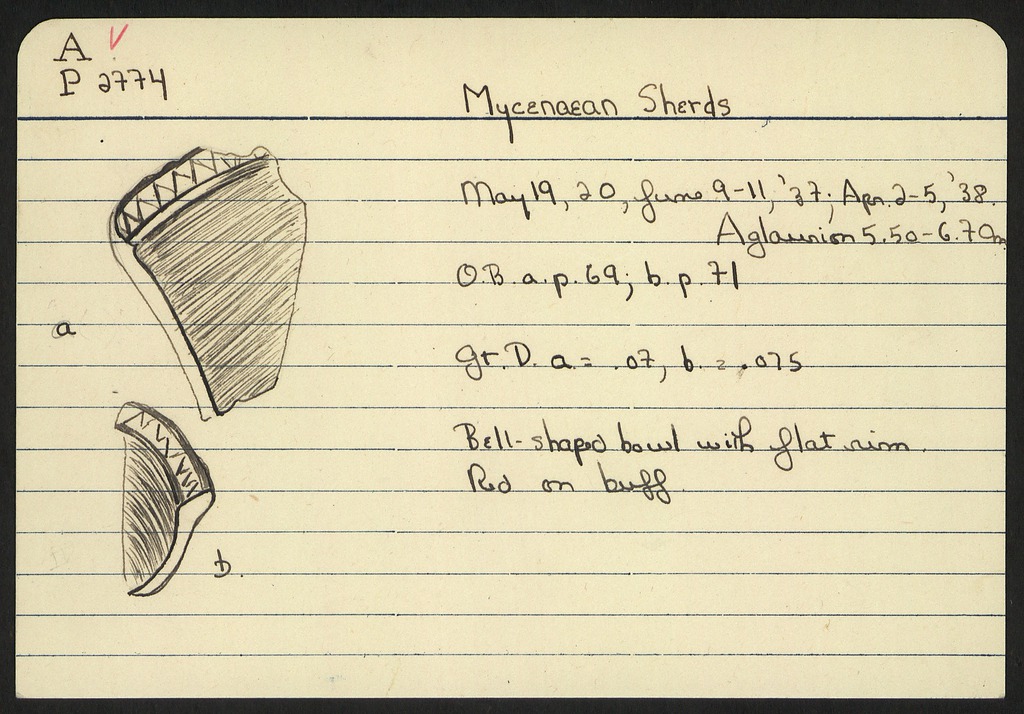 A ✓
P 2774
Mycenaean Sherds
May 19, 20, June 9-11, '37; Apr. 2-5, '38.
Aglaurion 5.50-6.70m
O.B. a. p. 69; b. p. 71
a
Gr. D. a. = .07, b. = .075
Bell-shaped bowl with flat rim.
Red on buff.
b.